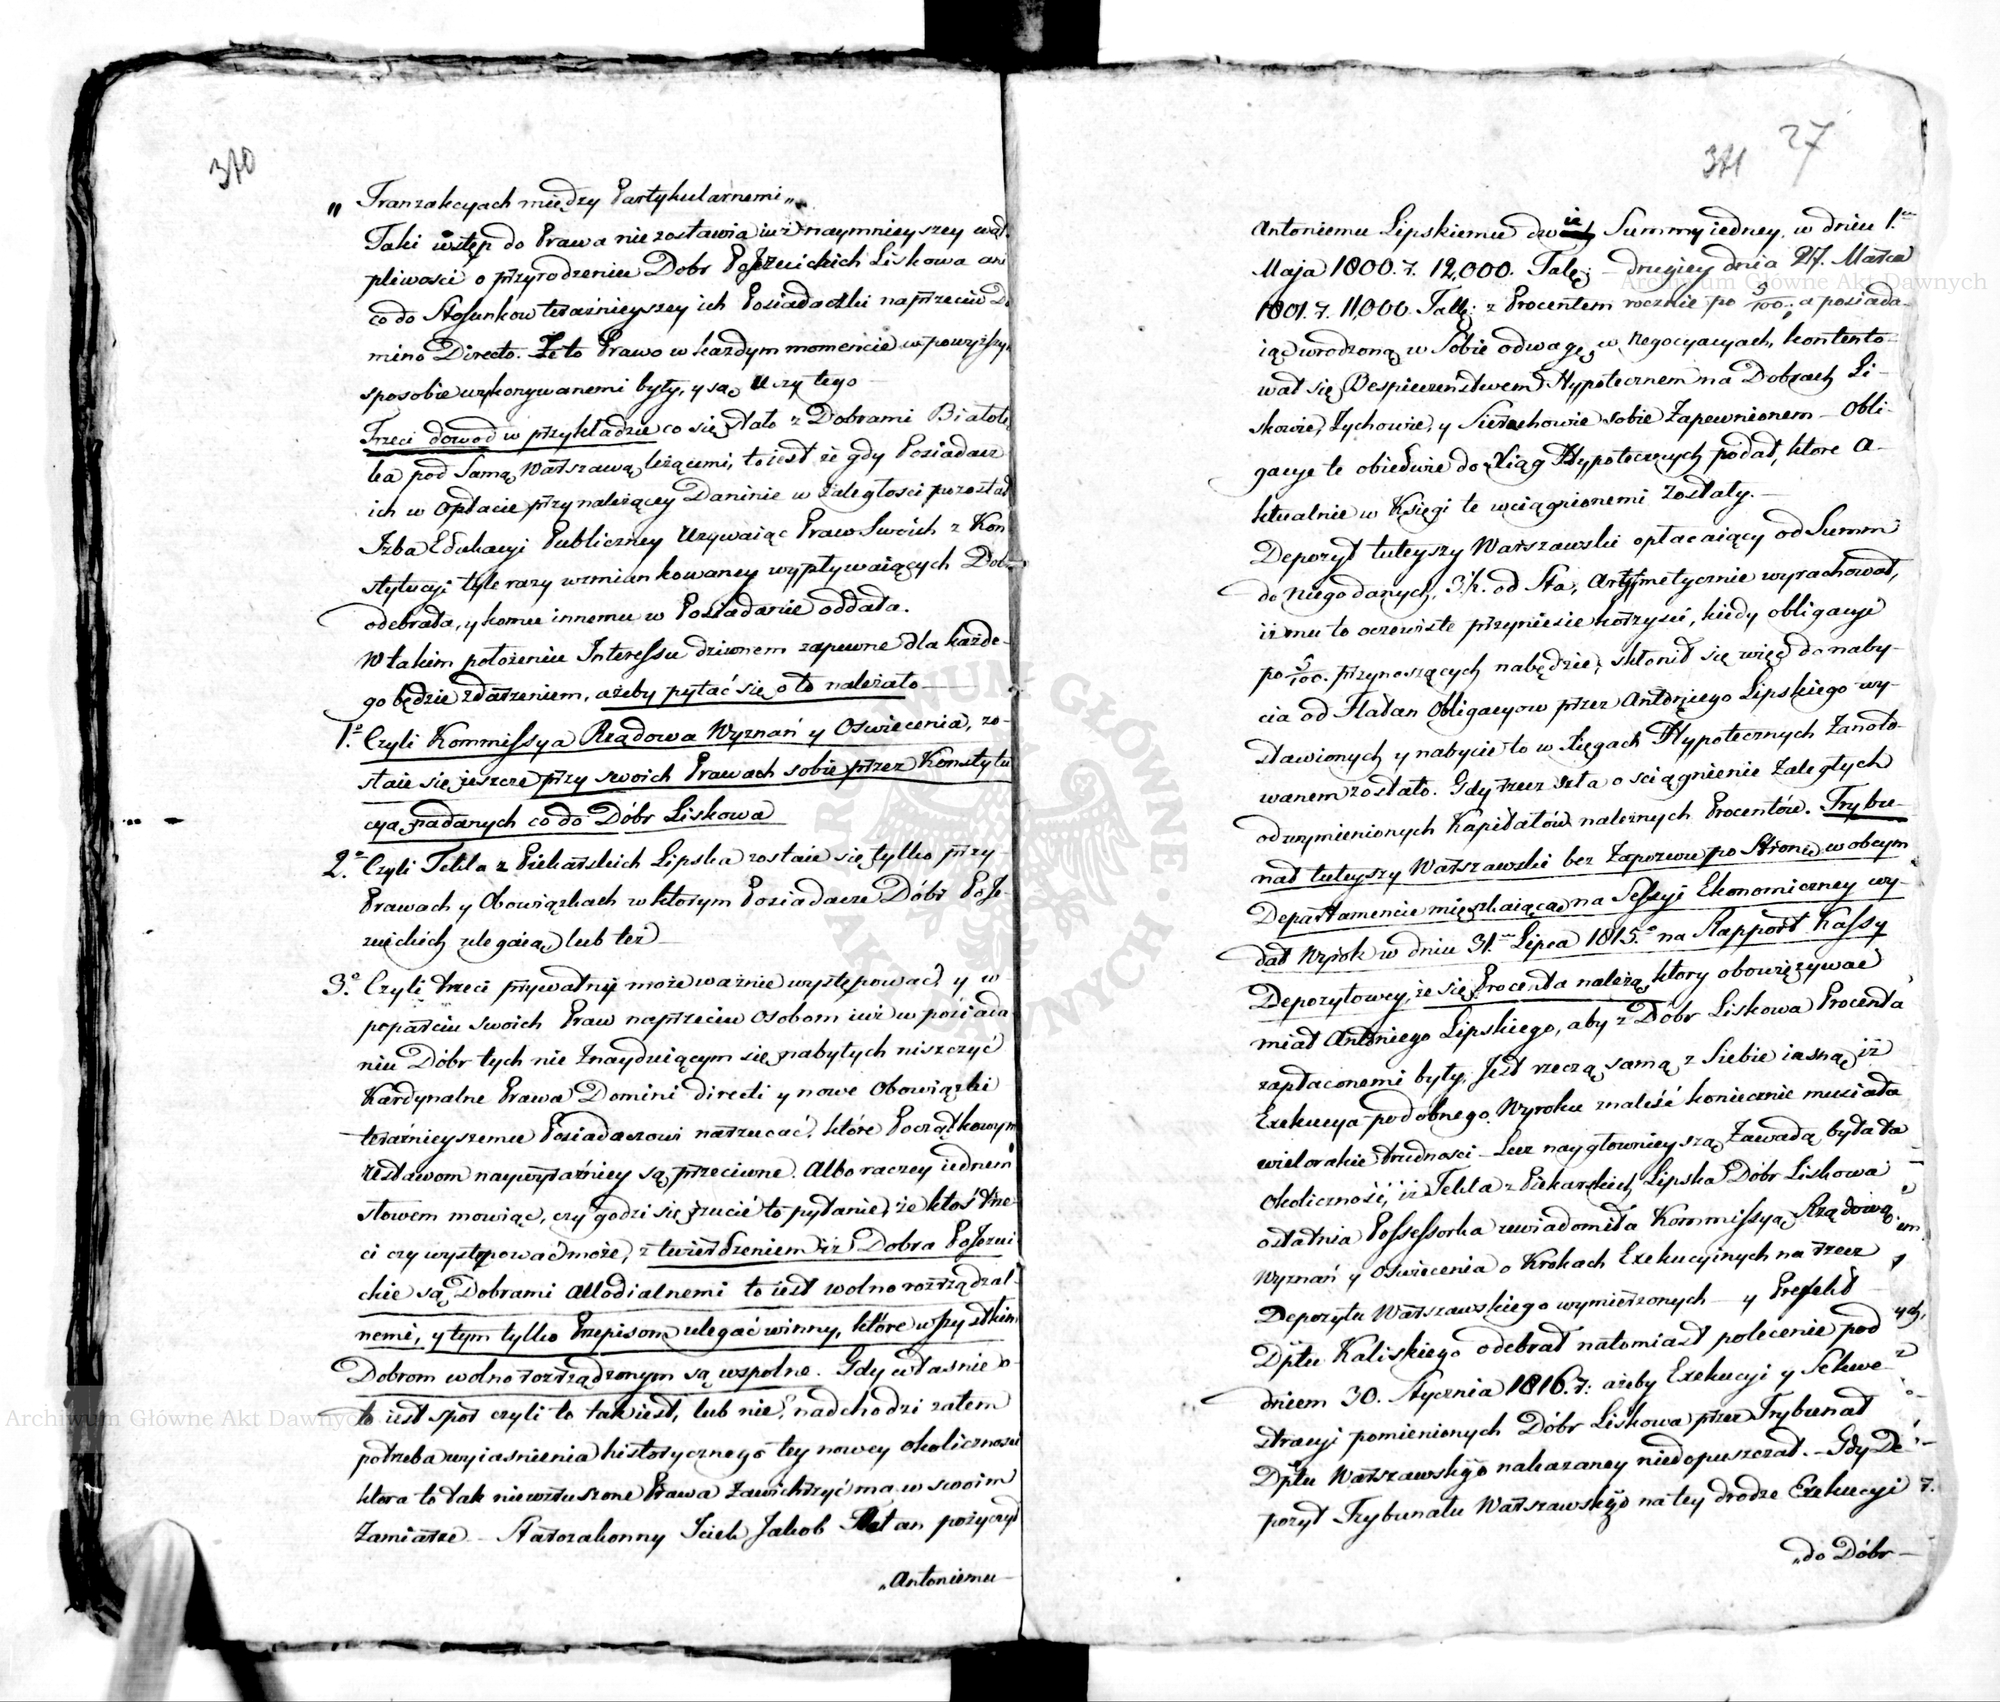 370
„Tranzakcyach między Partykularnemi„
Taki wstęp do Prawa nie zostawia iuż naymnieyszey wąt-
pliwości o przyrodzeniu Dobr PoJezuickich Liskowa ani
co do Stosunkow teraźnieyszey ich Posiadaczki naprzeciw Do
mino Directo. Że to Prawo w każdym momencie w powyższym
sposobie wykonywanemi były, y są Uczy tego
Trzeci dowod w przykładzie co się stało z Dobrami Białołę
ka pod Samą Warszawą leżącemi, to iest że gdy Posiadacz
ich w Opłacie przynależącey Daninie w zaległości pozostał
Izba Edukacyi Publiczney Używaiąc Praw Swoich z Kon
stytucyi tyle razy wzmiankowaney wypływaiących Dob
odebrała, y komu innemu w Posiadanie oddała.
W takim położeniu Interessu dziwnem zapewne dla każde-
go będzie zdarzeniem, ażeby pytać się o to należało
1° Czyli Kommissya Rządowa Wyznań y Oświecenia, zo-
staie się jeszcze przy swoich Prawach sobie przez Konstytu
cyą nadanych co do Dóbr Liskowa
2° Czyli Tekla z Piekarskich Lipska zostaie się tylko przy
Prawach y Obowiązkach w ktorym Posiadacze Dóbr PoJe-
zuickich ulegaią lub też
3° Czyli trzeci prywatny może ważnie występować y w
poparciu swoich Praw naprzeciw Osobom iuż w posiada
niu Dóbr tych nie Znayduiącym się nabytych niszczyć
Kardynalne Prawa Domini directi y nowe Obowiązki
teraźnieyszemu Posiadaczowi narzucać, które Początkowym
Ustawom naywyraźniey są przeciwne. Albo raczey iednem
słowem mowiąc, czy godzi się rzucić to pytanie, że ktoś trze-
ci czy występować może, z twierdzeniem iż Dobra PoJezui
ckie są Dobrami Allodialnemi to iest wolno rozrządzal-
nemi, y tym tylko Przepisom ulegać winny, które wszystkim
Dobrom wolno rozrządzonym są wspolne. Gdy właśnie o
to iest spor czyli to tak iest, lub nie, nadchodzi zatem
potrzeba wyiaśnienia historycznego tey nowey okoliczności
ktora to tak niewzruszone Prawa Zawichrzyć ma w swoim
Zamiarze – Starozakonny Icek Jakob Flatan pożyczył
„Antoniemu
27
371
Antoniemu Lipskiemu dwie Summy iedney, w dniu 1.
Maja 1800. r. 12,000. Tal: – drugiey dnia 27. Marca
1801. r. 11,000. Tall: z Procentem rocznie po 5/100: a posiada-
iąc wrodzoną w Sobie odwagę w Negocyacyach, kontento-
wał się Bespieczeństwem Hypotecznem na Dobrach Li-
skowie, Zychowie, y Sierzchowie sobie Zapewnionem – Obli-
gacye te obiedwie do Xiąg Hypotecznych podał, ktore a-
ktualnie w Księgi te wciągnionemi zostały. –
Depozyt tuteyszy Warszawski opłacaiący od Summ
do niego danych, 3/k. od Sta, Arytmetycznie wyrachował,
iż mu to oczewiste przyniesie korzyści, kiedy obligacye
po 5/100. przynoszących nabędzie, skłonił się więc do naby-
cia od Flatan Obligacyow przez Antoniego Lipskiego wy-
stawionych y nabycie to w Xięgach Hypotecznych Zanoto-
wanem zostało. Gdy rzecz szła o sciągnienie Zaległych
od wymienionych Kapitałów należnych Procentów. Trybu-
nał tuteyszy Warszawski bez Zapozwu po Stronę w obcym
Departamencie mięszkaiącą na Sessyi Ekonomiczney wy-
dał Wyrok w dniu 31. Lipca 1815. na Rapport Kassy
Depozytowey, że się Procenta należą, ktory obowięzywać
miał Antoniego Lipskiego, aby z Dóbr Liskowa Procenta
zapłaconemi były, Jest rzeczą samą z Siebie iasną iż
Exekucya podobnego Wyroku znaleść koniecznie musiała
wielorakie trudności – Lecz naygłownieyszą Zawadą była ta
Okoliczność, iż Tekla z Piekarskich Lipska Dóbr Liskowa
ostatnia Possessorka uwiadomiła Kommissyą Rządową
Wyznań y Oświecenia o Krokach Exekucyinych na rzecz
Depozytu Warszawskiego wymierzonych – y Prefekt
Dptu Kaliskiego odebrał natomiast polecenie pod
dniem 30. Stycznia 1816. r: ażeby Exekucyi y Sekwe-
stracyi pomienionych Dóbr Liskowa przez Trybunał
Dptu Warszawskigo nakazaney niedopuszczał. – Gdy De-
pozyt Trybunału Warszawskigo na tey drodze Exekucyi
„do Dóbr –